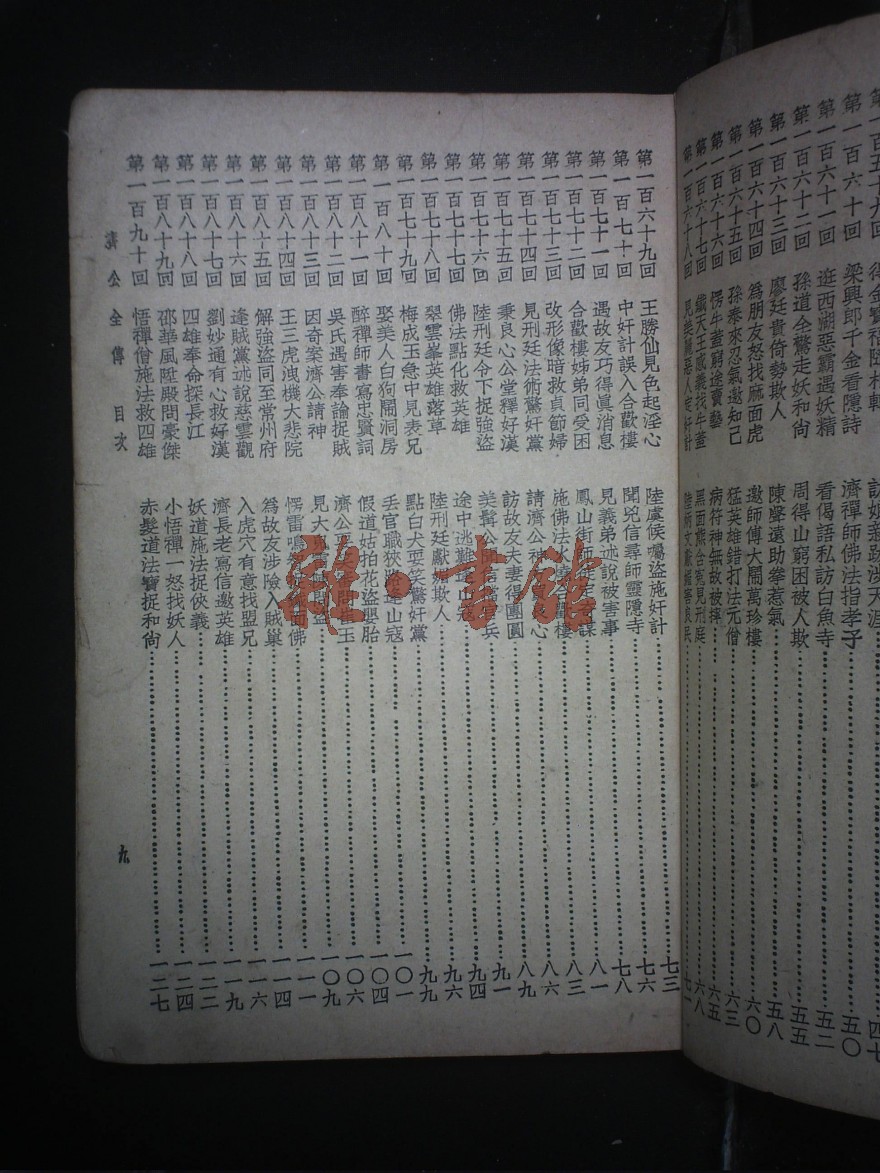 得金寶福
梁興郎千金看隱詩 濟禪師佛法指孝子 五〇
第一百六十一回 逛西湖惡霸遇妖精 看偈語私訪白魚寺 五二
第一百六十二回 孫道全驚走妖和尚 周得山窮困被人欺 五五
第一百六十三回 廖廷貴倚勢欺人 陳聲遠助拳惹氣 五八
第一百六十四回 爲朋友怒找麻面虎 邀師傅大鬧萬珍樓 六〇
第一百六十五回 孫泰來忍氣邀知己 猛英雄錯打法元僧 六三
第一百六十六回 愣牛蓋窮途賣藝 病符神無故被摔 六五
第一百六十七回 鐵天王感義找牛蓋 黑面熊含冤見刑廷 六八
第一百六十八回
第一百六十九回 王勝仙見色起淫心 陸虞候囑盜施奸計 七三
第一百七十回 中奸計誤入合歡樓 聞兇信尋師靈隱寺 七六
第一百七十一回 遇故友巧得眞消息 見義弟述說被害事 七八
第一百七十二回 合歡樓姊弟同受困 鳳山街師徒定 八一
第一百七十三回 改形像暗救貞節婦 施佛法火燒合歡樓 八三
第一百七十四回 見刑廷法術驚奸黨 請濟公神 心 八六
第一百七十五回 秉良心公堂釋好漢 訪故友夫妻得團圓 八九
第一百七十六回 陸刑廷令下捉強盜 美髯公 兵 九一
第一百七十七回 佛法點化救英雄 途中逃難 山寇 九四
第一百七十八回 翠雲峯英雄落草 陸刑廷獻 欺人 九六
第一百七十九回 梅成玉急中見表兄 點白犬耍笑驚奸黨 九九
第一百八十回 娶美人白狗鬧洞房 丟官職狹路逢山寇 一〇一
第一百八十一回 醉禪師書寫忠賢詞 假道姑拍花盜嬰胎 一〇四
第一百八十二回 吳氏遇害奉諭捉賊 濟公 玉 一〇六
第一百八十三回 因奇案濟公請神 見大 一〇九
第一百八十四回 王三虎洩機大悲院 愣雷鳴 面佛 一一一
第一百八十五回 解強盜同至常州府 爲故友涉險入賊巢 一一四
第一百八十六回 逢賊黨述說慈雲觀 入虎穴有意找盟兄 一一六
第一百八十七回 劉妙通有心救好漢 濟長老寫信邀英雄 一一九
第一百八十八回 四雄奉命探長江 妖道施法捉俠義 一二二
第一百八十九回 邵華風陞殿問豪傑 小悟禪一怒找妖人 一二四
第一百九十回 悟禪僧施法救四雄 赤髮道法寶捉和尚 一二七
濟公全傳 目次
九
雜·書館